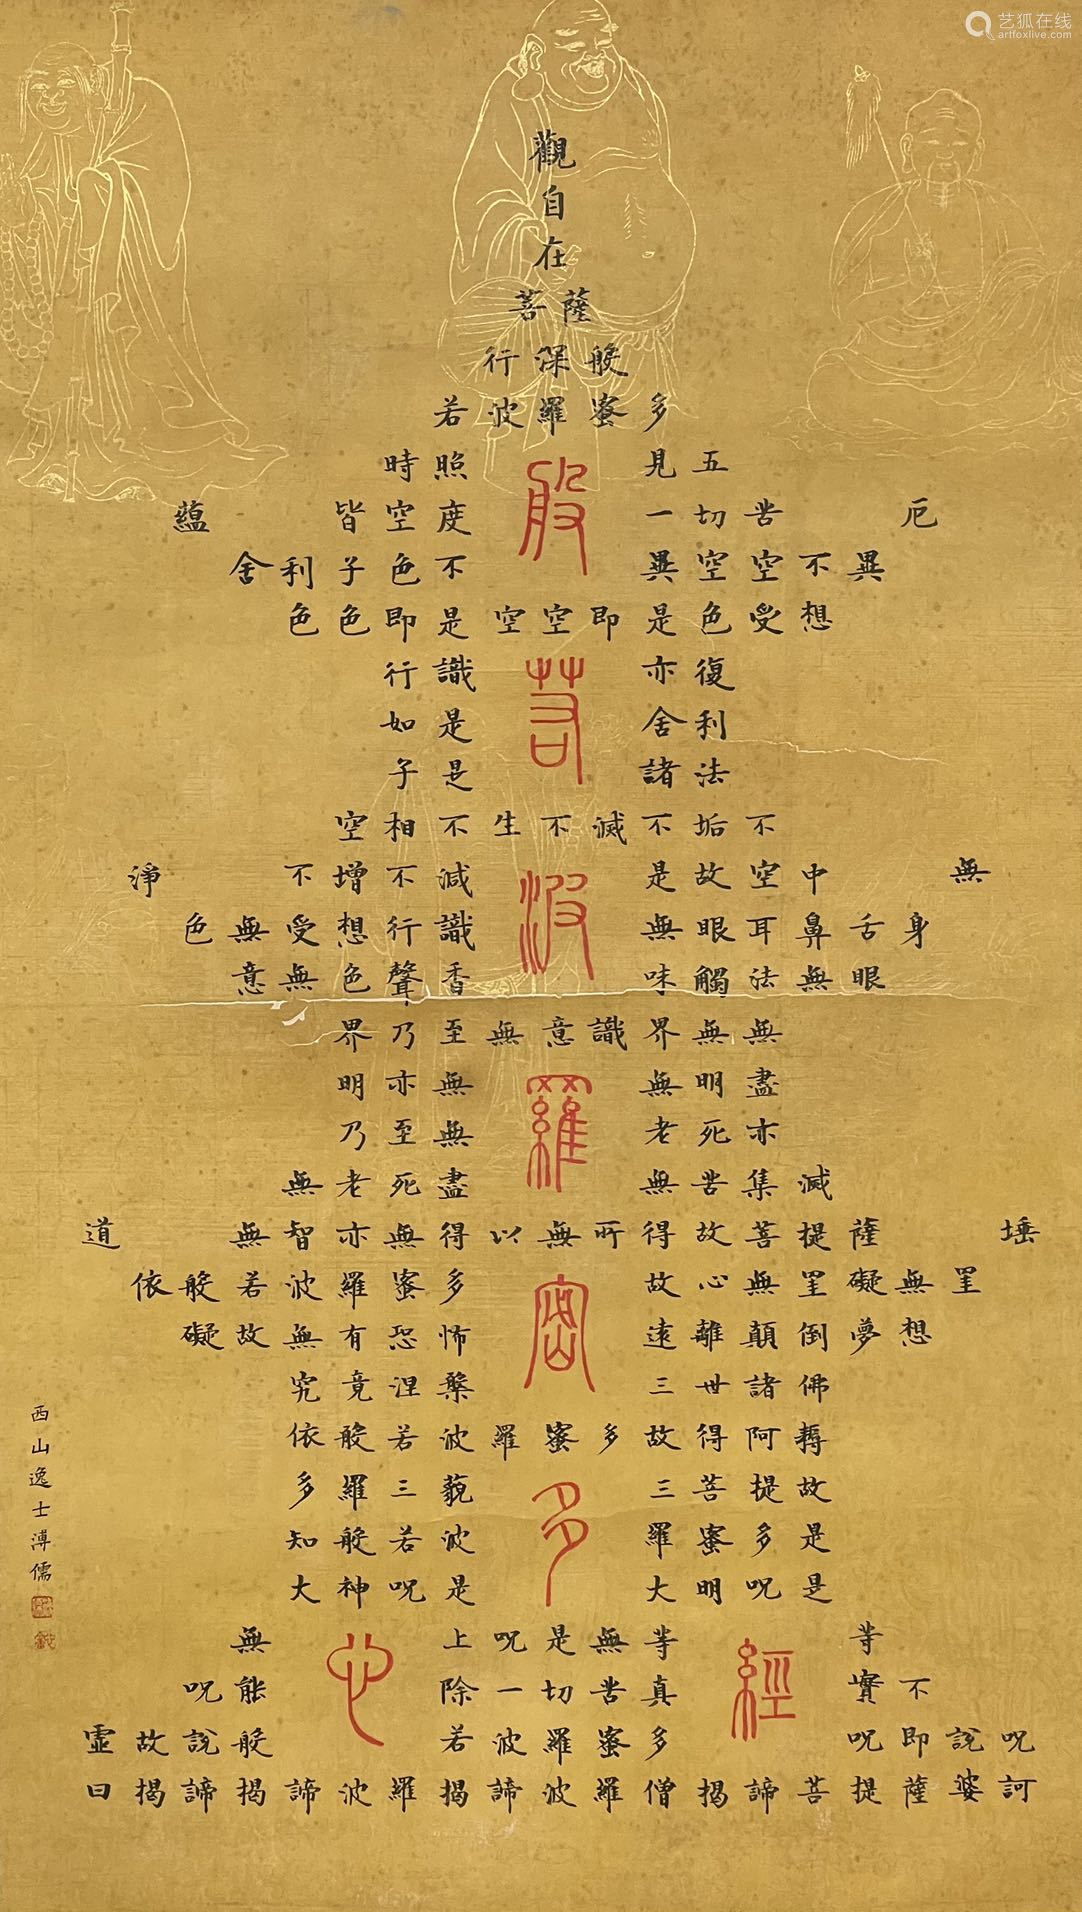 艺狐在线
artfoxlive.com
觀
自
在
菩薩
行深般
若波羅蜜多
時照見五
蘊皆空度一切苦厄
舍利子色不異空空不異
色色即是空空即是色受想
行識亦復
如是舍利
子是諸法
空相不生不滅不垢不
淨不增不減是故空中無
色無受想行識無眼耳鼻舌身
意無色聲香味觸法無眼
界乃至無意識界無無
明亦無無明盡
乃至無老死亦
無老死盡無苦集滅
道無智亦無得以無所得故菩提薩埵
依般若波羅蜜多故心無罣礙無罣
礙故無有恐怖遠離顛倒夢想
究竟涅槃三世諸佛
依般若波羅蜜多故得阿耨
多羅三藐三菩提故
知般若波羅蜜多是
大神咒是大明咒是
無上咒是無等等
咒能除一切苦真實不
虛故說般若波羅蜜多咒即說咒
曰揭諦揭諦波羅揭諦波羅僧揭諦菩提薩婆訶
般若波羅密多心經
西山逸士溥儒